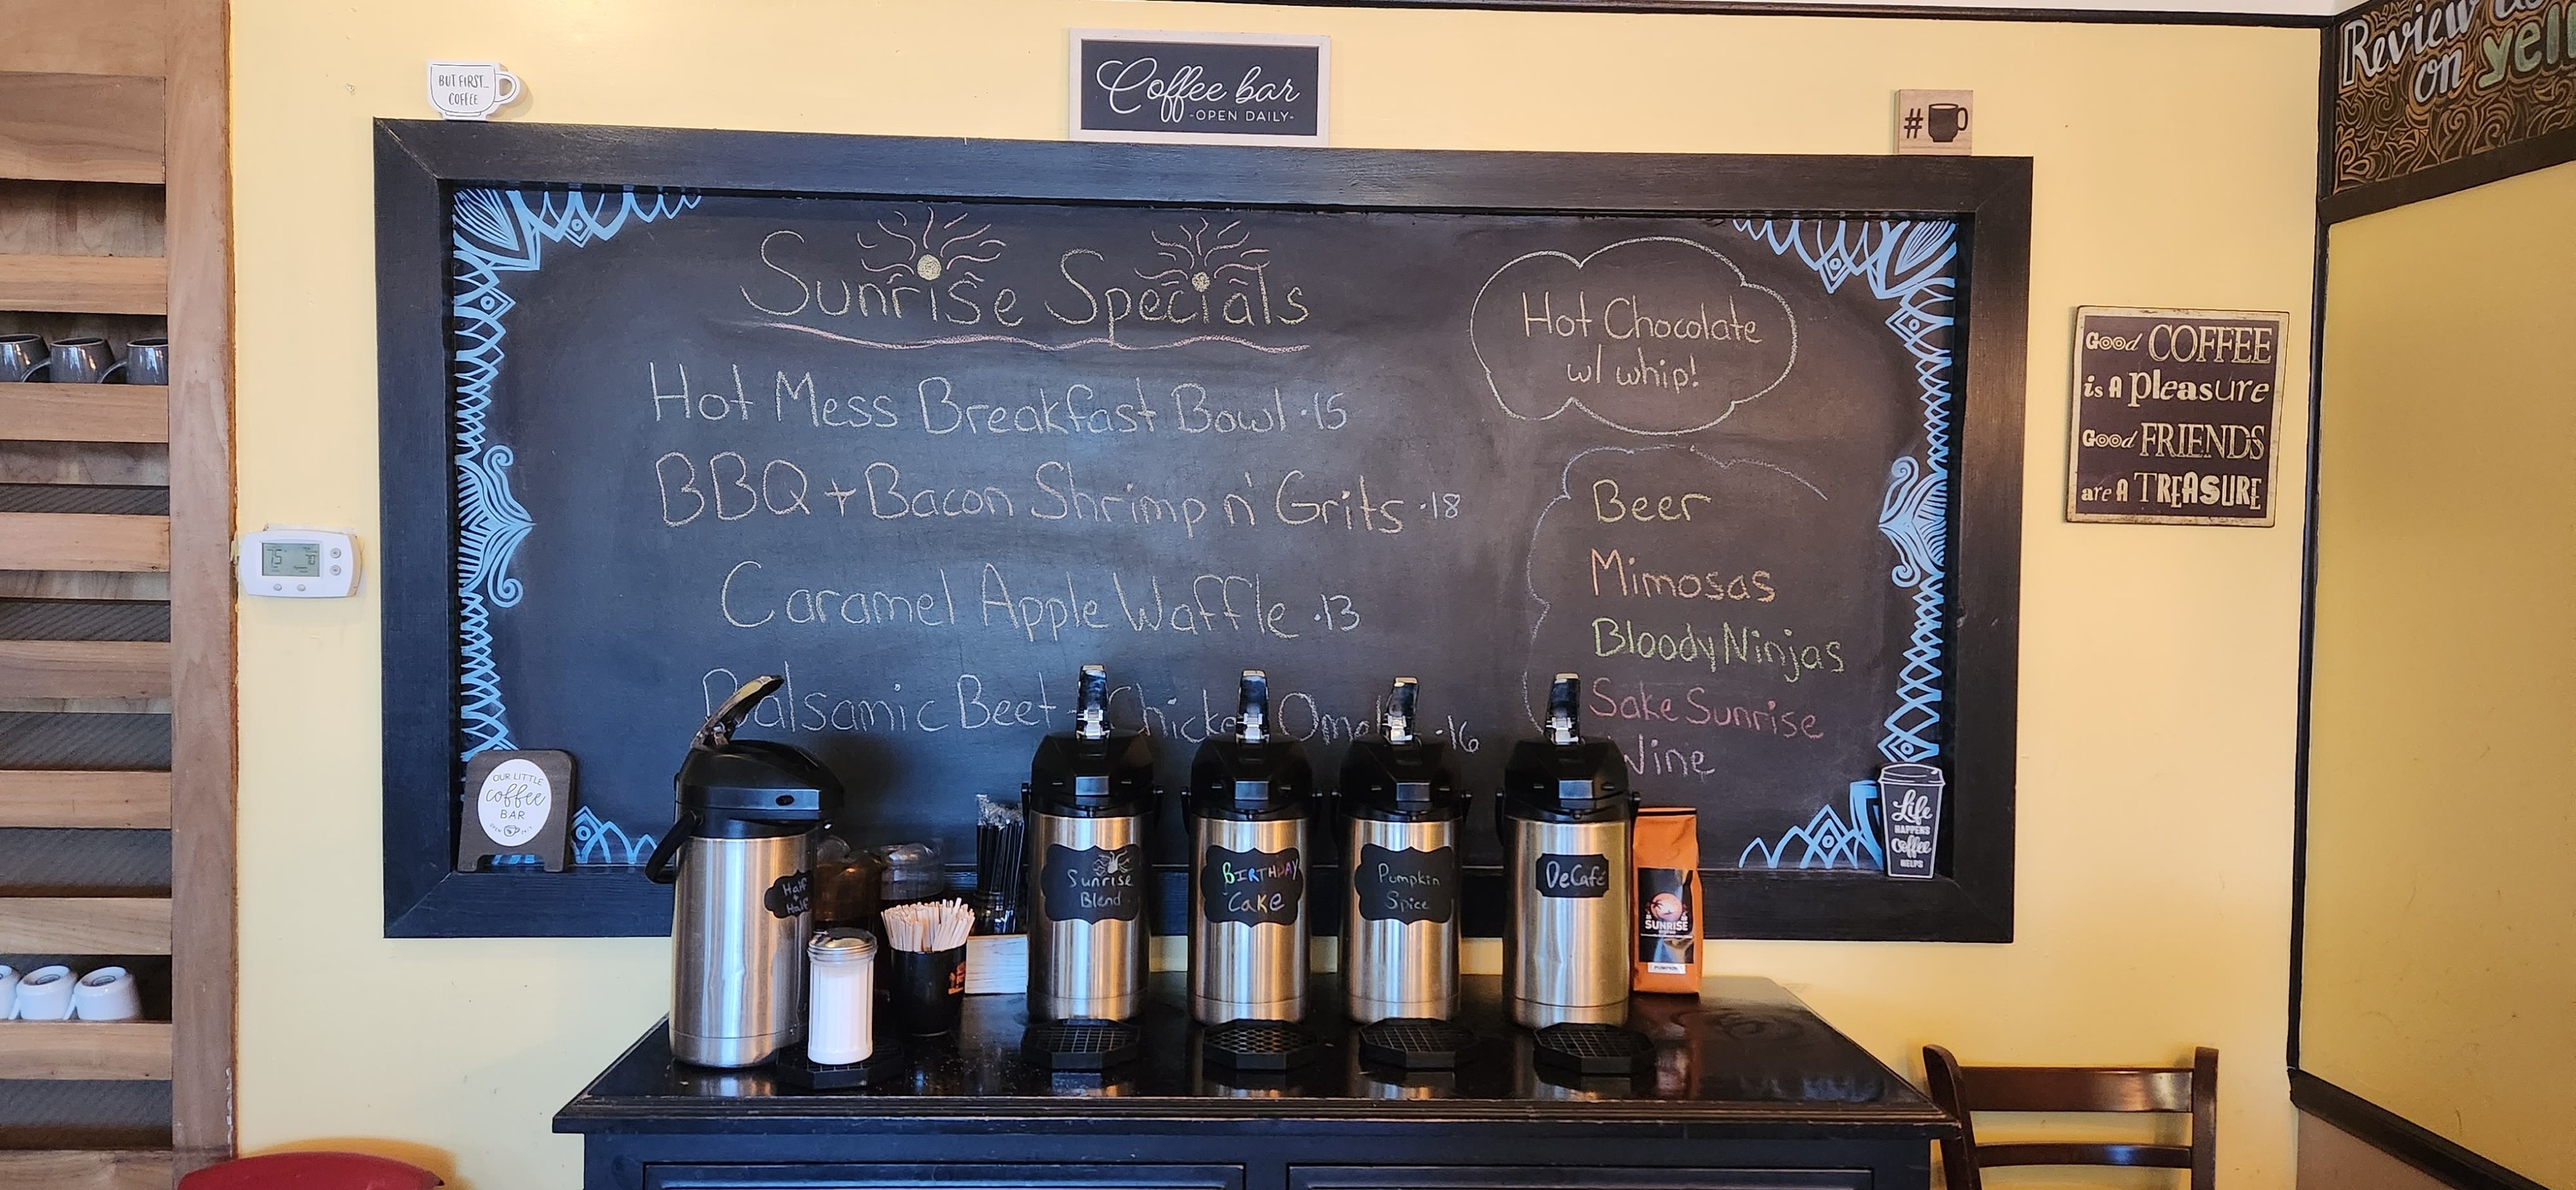 BUT FIRST...
COFFEE
Coffee bar
-OPEN DAILY-
#
Review us
on yel
Sunrise Specials
Hot Mess Breakfast Bowl ·15
BBQ + Bacon Shrimp n' Grits ·18
Caramel Apple Waffle ·13
Balsamic Beet Chicke Ome ·16
Hot Chocolate
w/ whip!
Beer
Mimosas
Bloody Ninjas
Sake Sunrise
Wine
Good COFFEE
is A pleasure
Good FRIENDS
are A TREASURE
75
70
OUR LITTLE
coffee
BAR
Life
HAPPENS
Coffee
HELPS
Half
+
Half
Sunrise
Blend
BIRTHDAY
Cake
Pumpkin
Spice
DeCafé
SUNRISE
PUMPKIN